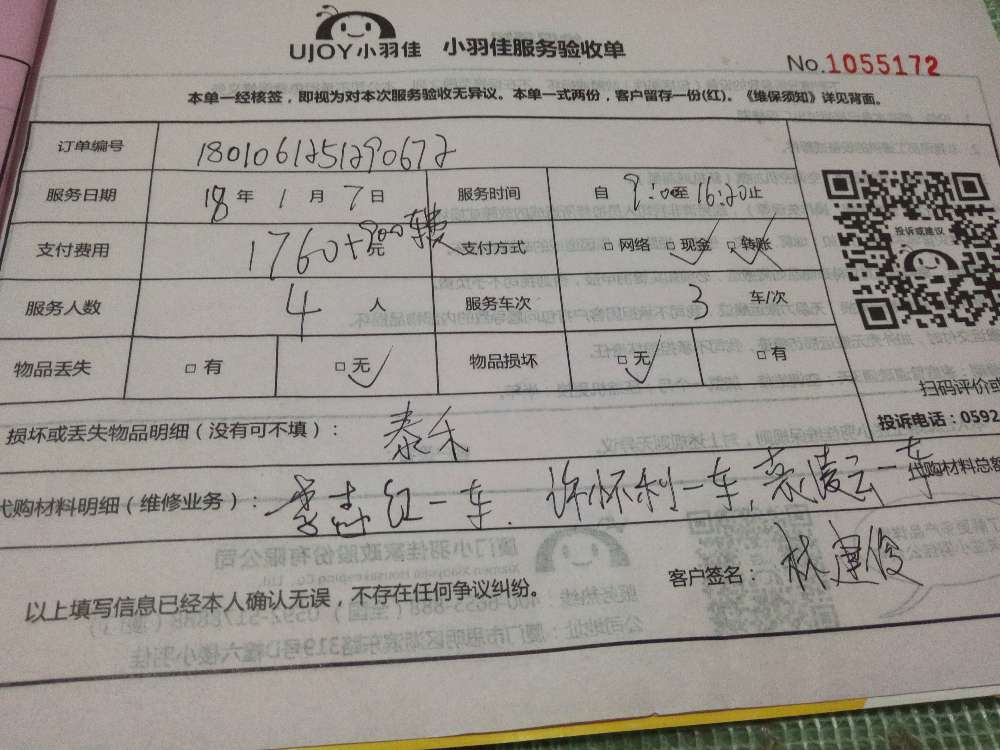 UJOY小羽佳 小羽佳服务验收单
No.1055172
本单一经核签，即视为对本次服务验收无异议。本单一式两份，客户留存一份(红)。《维保须知》详见背面。
订单编号 1801061251290672
服务日期 18 年 1 月 7 日 服务时间 自 9:00至 16:20止
支付费用 1760+900转 元 支付方式 □ 网络 □ 现金 □ 转账
服务人数 4 人 服务车次 3 车/次
物品丢失 □ 有 □ 无 物品损坏 □ 无 □ 有
投诉或建议
扫码评价或
投诉电话：0592
损坏或丢失物品明细（没有可不填）： 泰禾
代购材料明细（维修业务）： 李志红一车、许怀利一车，袁凌云一车
代购材料总额
以上填写信息已经本人确认无误，不存在任何争议纠纷。
客户签名： 林建俊